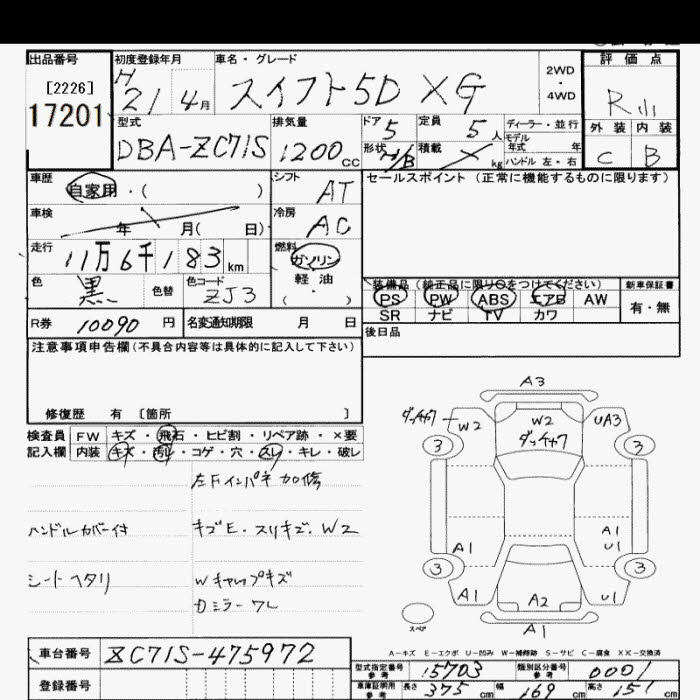 出品番号 初度登録年月 車名・グレード 2WD ・ 4WD 評価点
[2226] H 21 4月 スイフト5D XG R小
17201
型式 排気量 ドア 5 定員 5人 ディーラー・並行 外装 内装
DBA-ZC71S 1200cc 形状 H/B 積載 kg モデル年式 年 C B
ハンドル 左・右
車歴 シフト セールスポイント (正常に機能するものに限ります)
自家用・( ) AT
車検 年 月( 日) 冷房 AC
走行 11万6千183km 燃料 ガソリン
軽油
( ・ )
色 黒 色替 色コード ZJ3
装備品 (純正品に限り○をつけてください) 新車保証書
PS PW ABS エアB AW 有・無
SR ナビ TV カワ
R券 10090円 名変通知期限 月 日 後日品
注意事項申告欄 (不具合内容等は具体的に記入して下さい)
修復歴 有 [箇所 ]
検査員 FW キズ・飛石・ヒビ割・リペア跡・×要
記入欄 内装 キズ・汚レ・コゲ・穴・スレ・キレ・破レ
左Fインパネ加修
ハンドルカバー付 キズE・スリキズ・W2
シートヘタリ Wキャップキズ
Dミラーワレ
A3
ダッチャク W2 W2 ダッチャク UA3
3 3
A1 A1 U1
3 3
A1 A2 U1
スペア A1
A-キズ E-エクボ U-凹み W-補修跡 S-サビ C-腐食 XX-交換済
車台番号 ZC71S-475972
型式指定番号 参考 15703 類別区分番号 参考 0001
登録番号 車庫証明用 参考 長さ 375cm 幅 169cm 高さ 151cm